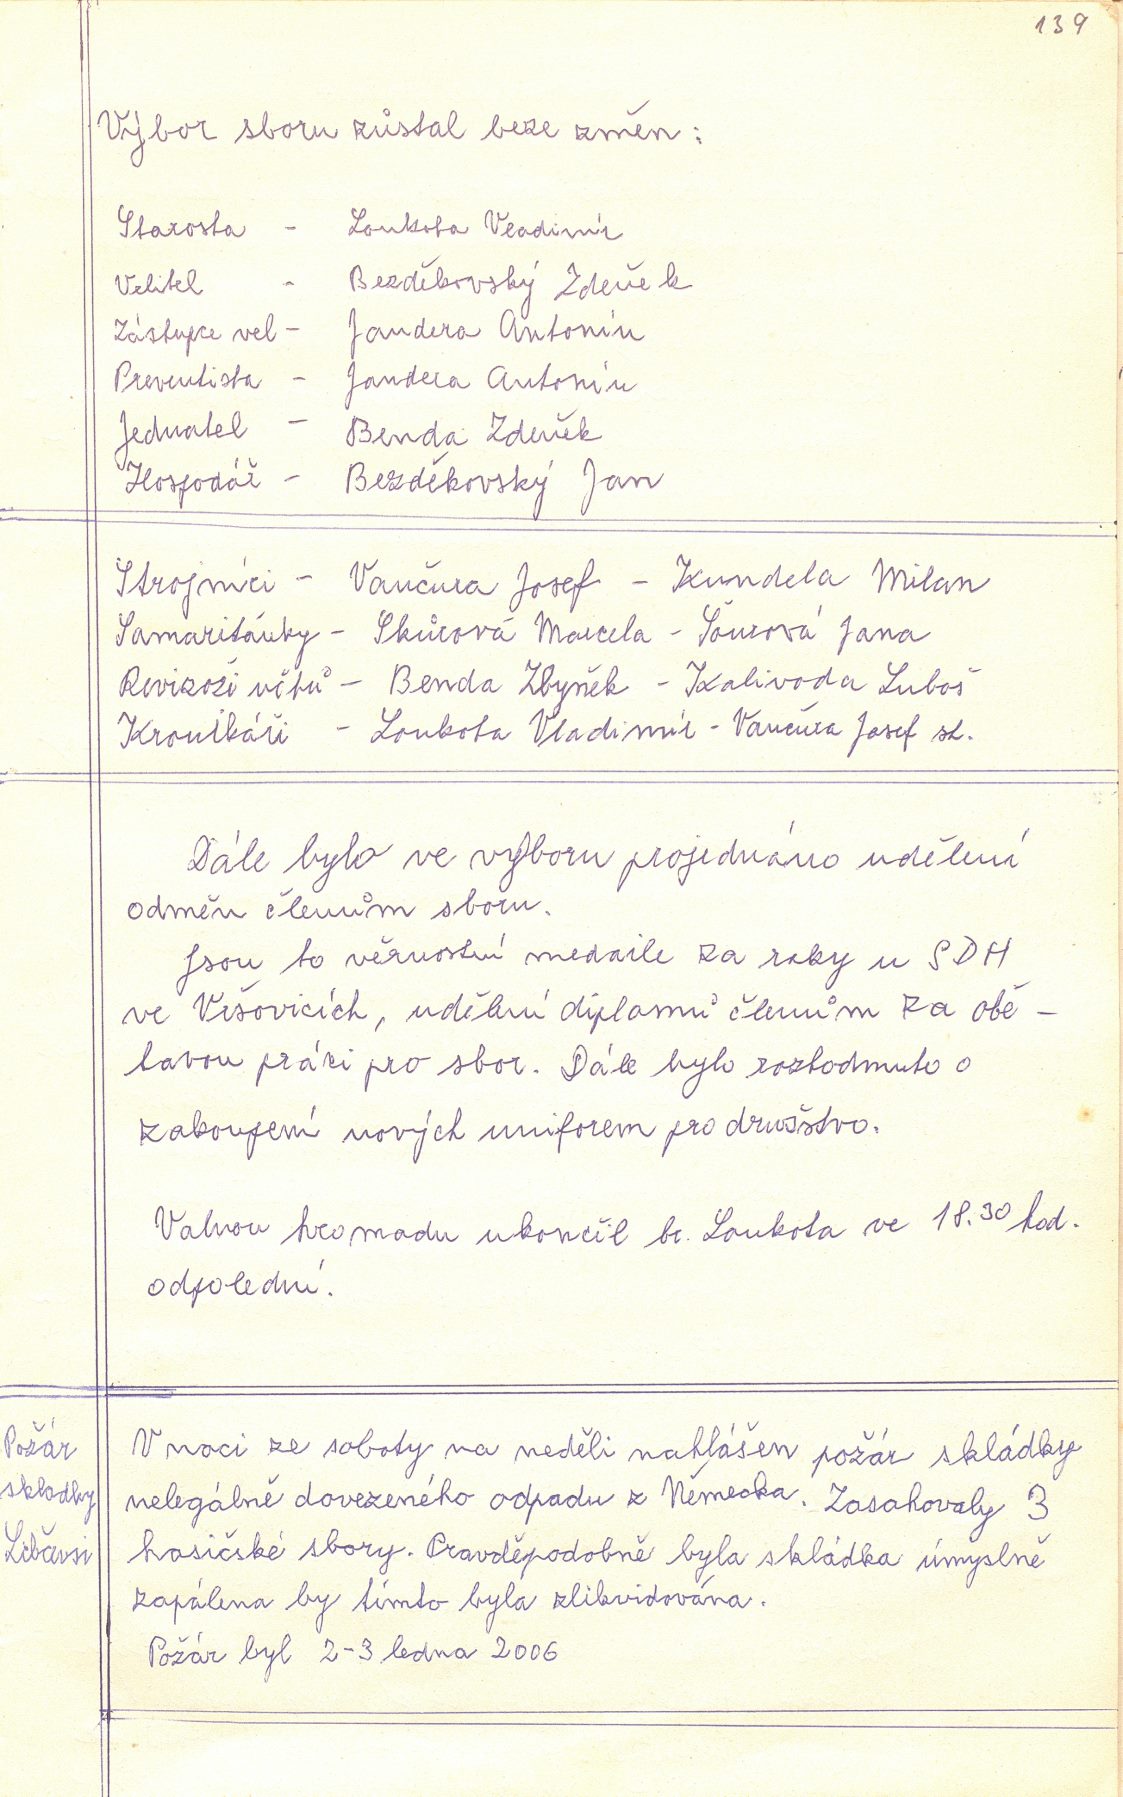 139
Výbor sboru zůstal beze změn:
Starosta - Loukota Vladimír
Velitel - Bezděkovský Zdeněk
Zástupce vel - Jandera Antonín
Preventista - Jandera Antonín
Jednatel - Benda Zdeněk
Hospodář - Bezděkovský Jan
Strojníci - Vančura Josef - Kundela Milan
Samaritánky - Skůrová Marcela - Šourová Jana
Revizoři účtů - Benda Zbyněk - Kalivoda Luboš
Kronikáři - Loukota Vladimír - Vančura Josef st.
Dále bylo ve výboru projednáno udělení
odměn členům sboru.
Jsou to věrnostní medaile za roky u SDH
ve Vršovicích, udělení diplomů členům za obě-
tavou práci pro sbor. Dále bylo rozhodnuto o
zakoupení nových uniforem pro družstvo.
Valnou hromadu ukončil br. Loukota ve 18.30 hod.
odpolední.
Požár
skladky
Libčevsi
V noci ze soboty na neděli nahlášen požár skládky
nelegálně dovezeného odpadu z Německa. Zasahovaly 3
hasičské sbory. Pravděpodobně byla skládka úmyslně
zapálena by tímto byla zlikvidována.
Požár byl 2-3 ledna 2006